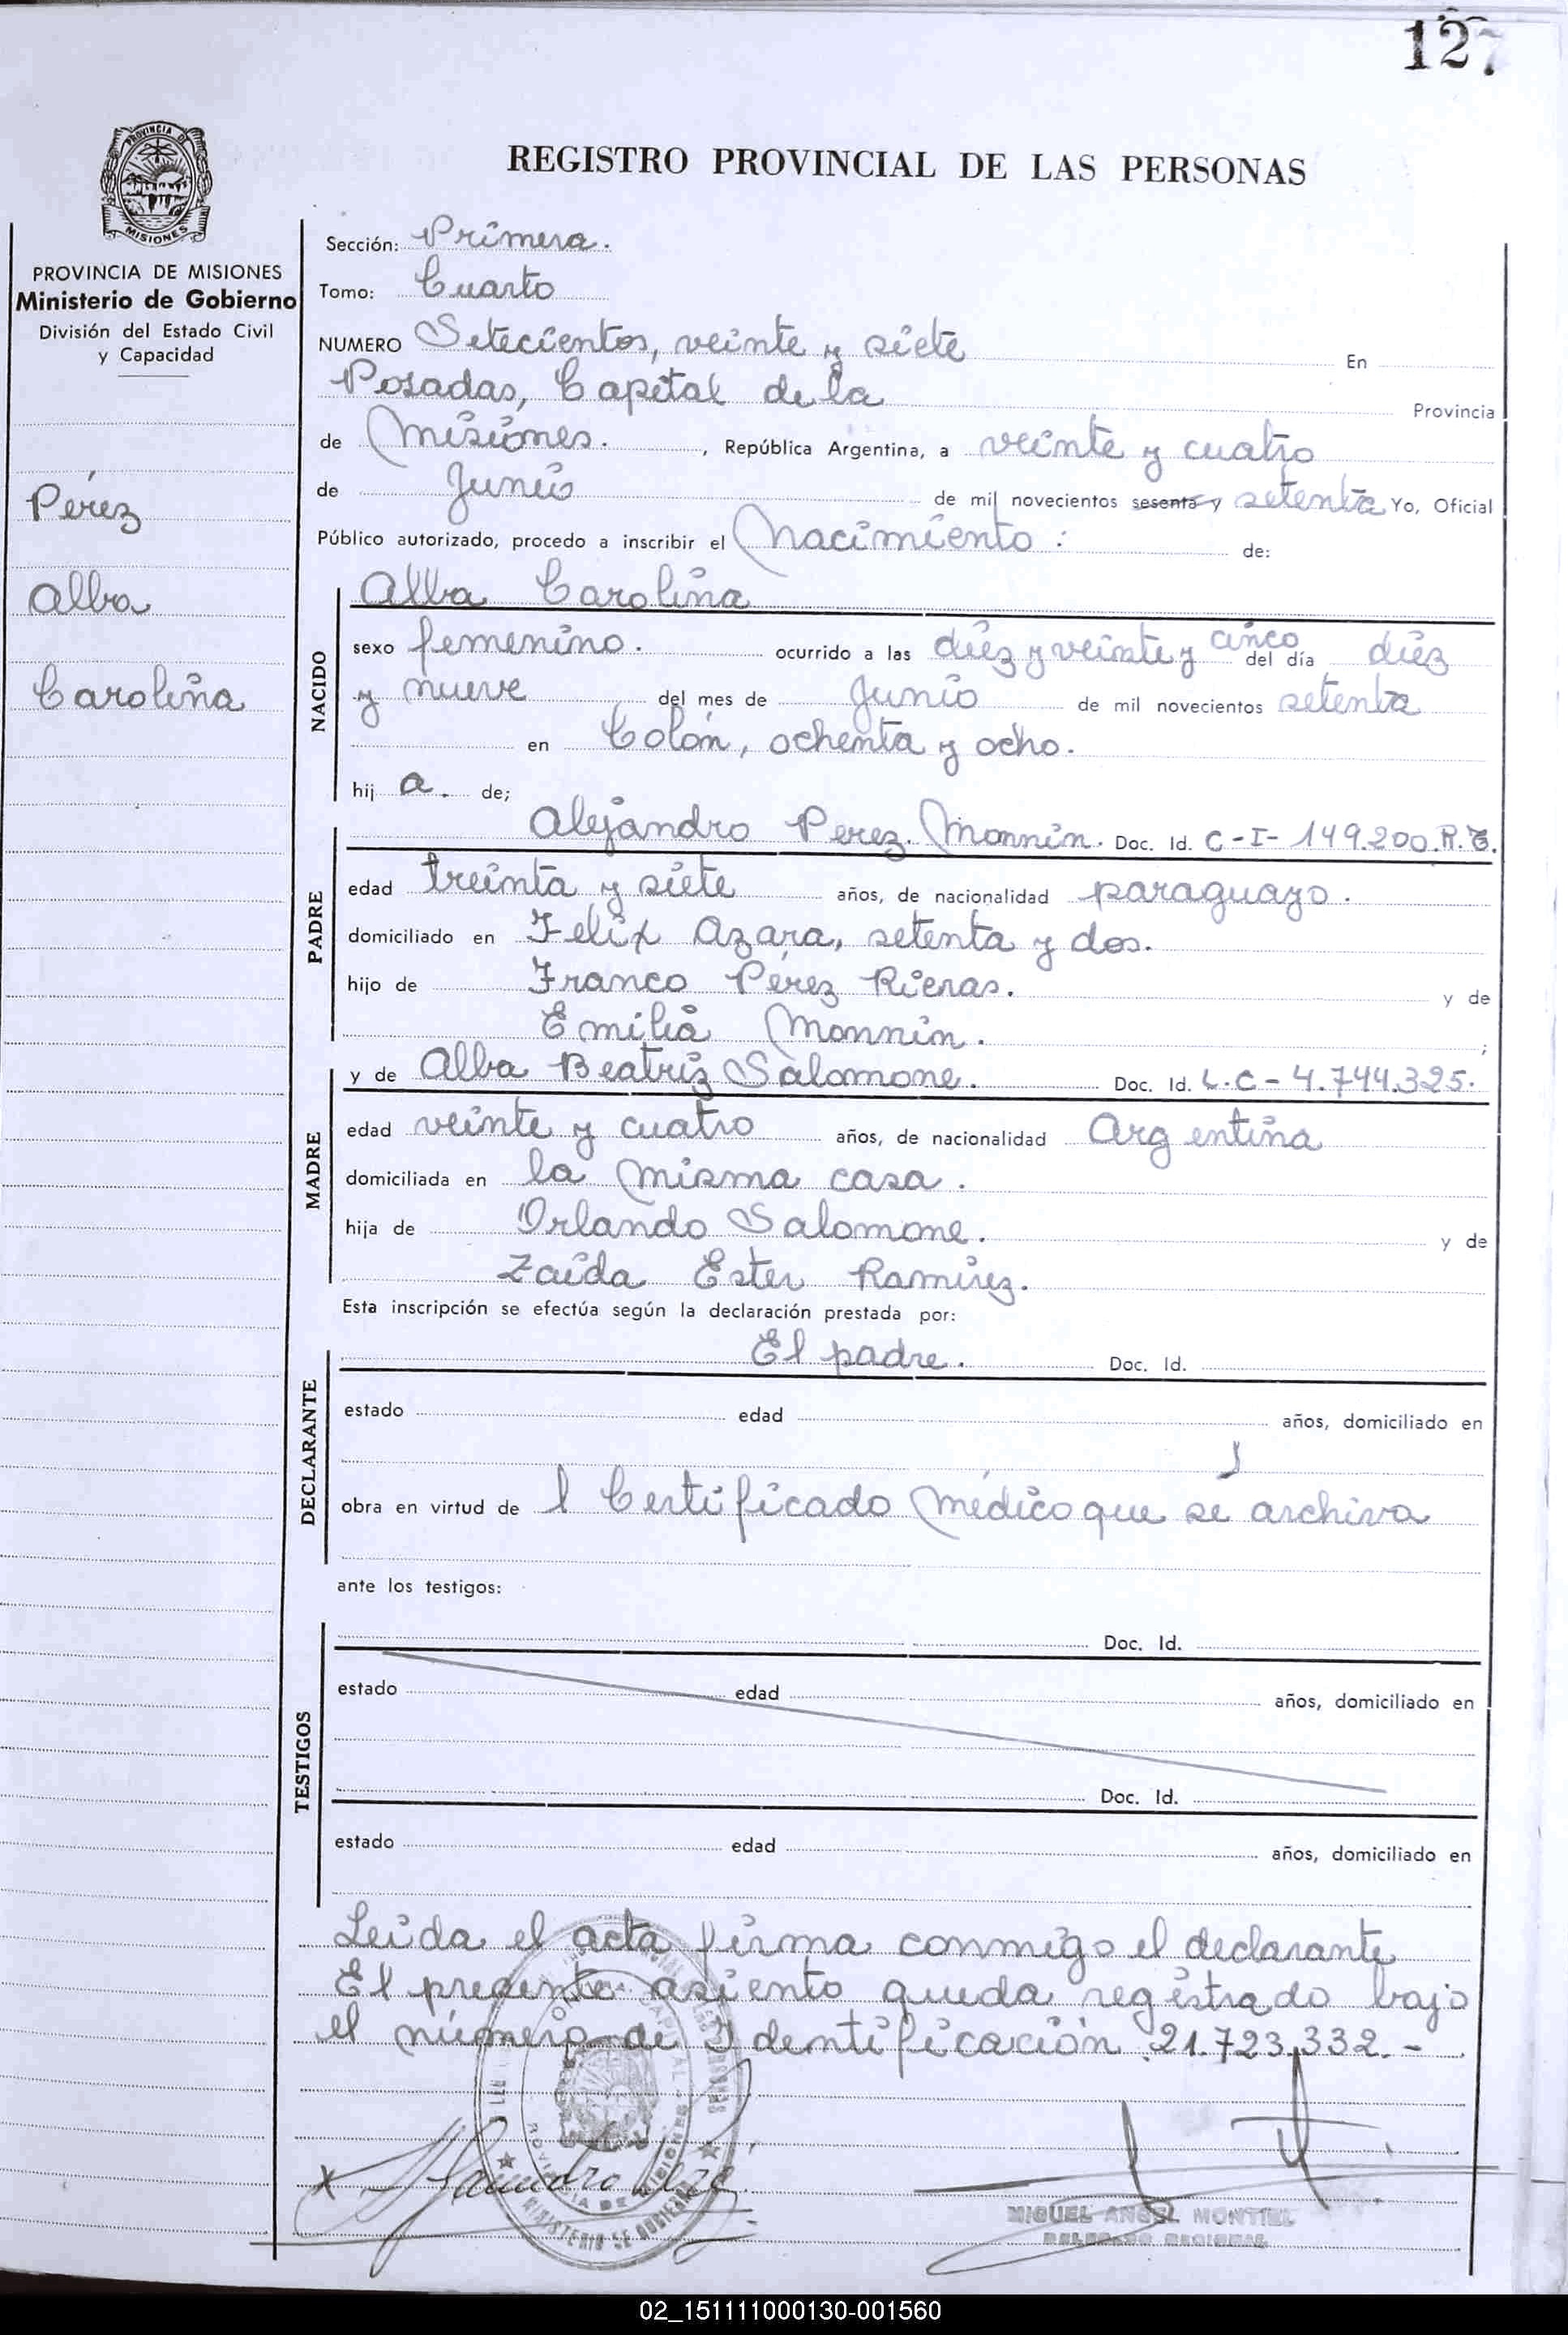 127
PROVINCIA DE MISIONES
REGISTRO PROVINCIAL DE LAS PERSONAS
PROVINCIA DE MISIONES
Ministerio de Gobierno
División del Estado Civil
y Capacidad
Pérez
Alba
Carolina
Sección: Primera.
Tomo: Cuarto
NUMERO Setecientos, veinte y siete En
Posadas, Capital de la Provincia
de Misiones. , República Argentina, a veinte y cuatro
de Junio de mil novecientos sesenta y setenta Yo, Oficial
Público autorizado, procedo a inscribir el Nacimiento : de:
NACIDO
Alba Carolina
sexo femenino. ocurrido a las diez y veinte y cinco del día diez
y nueve del mes de Junio de mil novecientos setenta
en Colón, ochenta y ocho.
hij a. de;
PADRE
Alejandro Perez Monnin. Doc. Id. C-I- 149.200.R.C.
edad treinta y siete años, de nacionalidad paraguayo.
domiciliado en Felix Azara, setenta y dos.
hijo de Franco Pérez y de
Emilia Monnin. ;
MADRE
y de Alba Beatriz Salomone. Doc. Id. L.C- 4.744.325.
edad veinte y cuatro años, de nacionalidad Argentina
domiciliada en la misma casa.
hija de Orlando Salomone. y de
Zaida Ester Ramirez.
Esta inscripción se efectúa según la declaración prestada por:
DECLARANTE
El padre. Doc. Id.
estado edad años, domiciliado en
obra en virtud de l Certificado médico que se archiva
ante los testigos:
TESTIGOS
Doc. Id.
estado edad años, domiciliado en
Doc. Id.
estado edad años, domiciliado en
Leida el acta firma conmigo el declarante
El presente asiento queda registrado bajo
el número de Identificación 21.723.332.-
MIGUEL ANGEL MONTIEL
DELEGADO REGIONAL
02_151111000130-001560